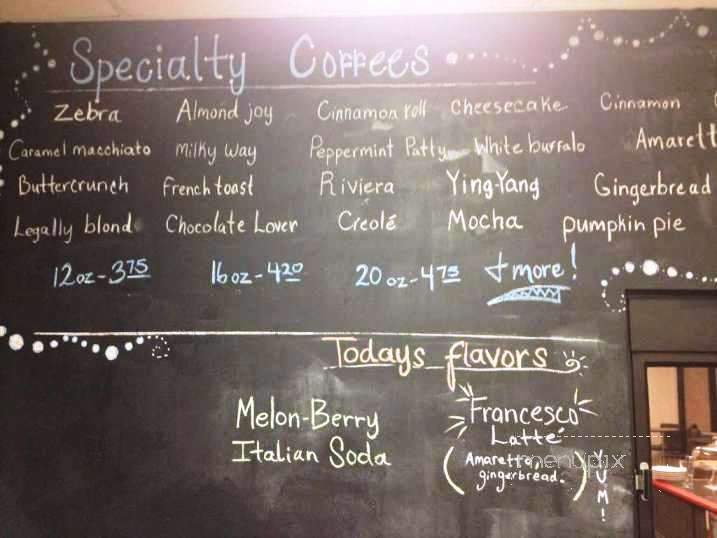 Specialty Coffees
Zebra Almond joy Cinnamon roll Cheesecake Cinnamon
Caramel macchiato Milky Way Peppermint Patty White buffalo Amarett
Buttercrunch french toast Riviera Ying-Yang Gingerbread
Legally blond Chocolate Lover Creolé Mocha pumpkin pie
12oz-3.75 16oz-4.20 20oz-4.75 + more!
Todays flavors
Melon-Berry
Italian Soda
Francesco
Latté
(Amaretto,
gingerbread.)
YUM!
menupix